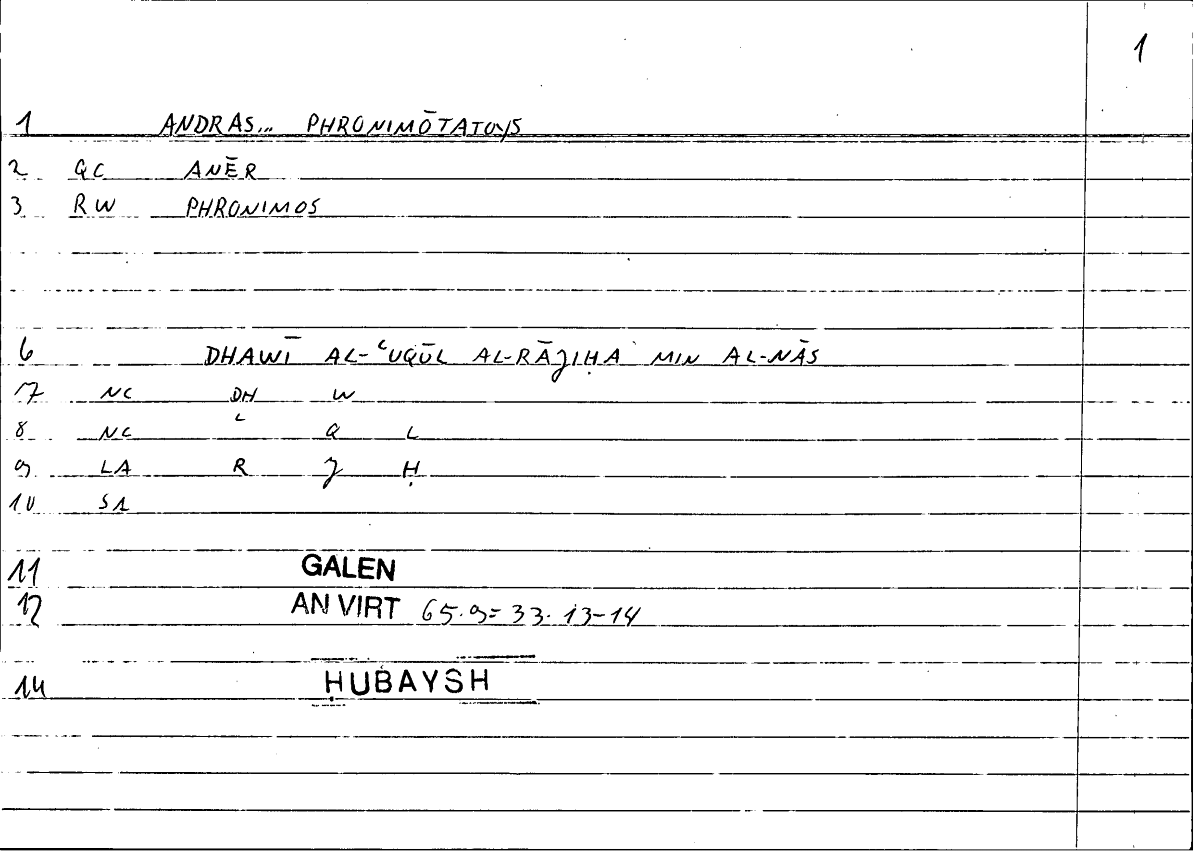 1
1 ANDRAS... PHRONIMŌTATOYS
2 QC ANĒR
3 RW PHRONIMOS
6 DHAWĪ AL-ʿUQŪL AL-RĀJIḤA MIN AL-NĀS
7 NC DH W
8 NC ʿ Q L
9 LA R J Ḥ
10 SA
11 GALEN
12 AN VIRT 65.9= 33.13-14
14 ḤUBAYSH